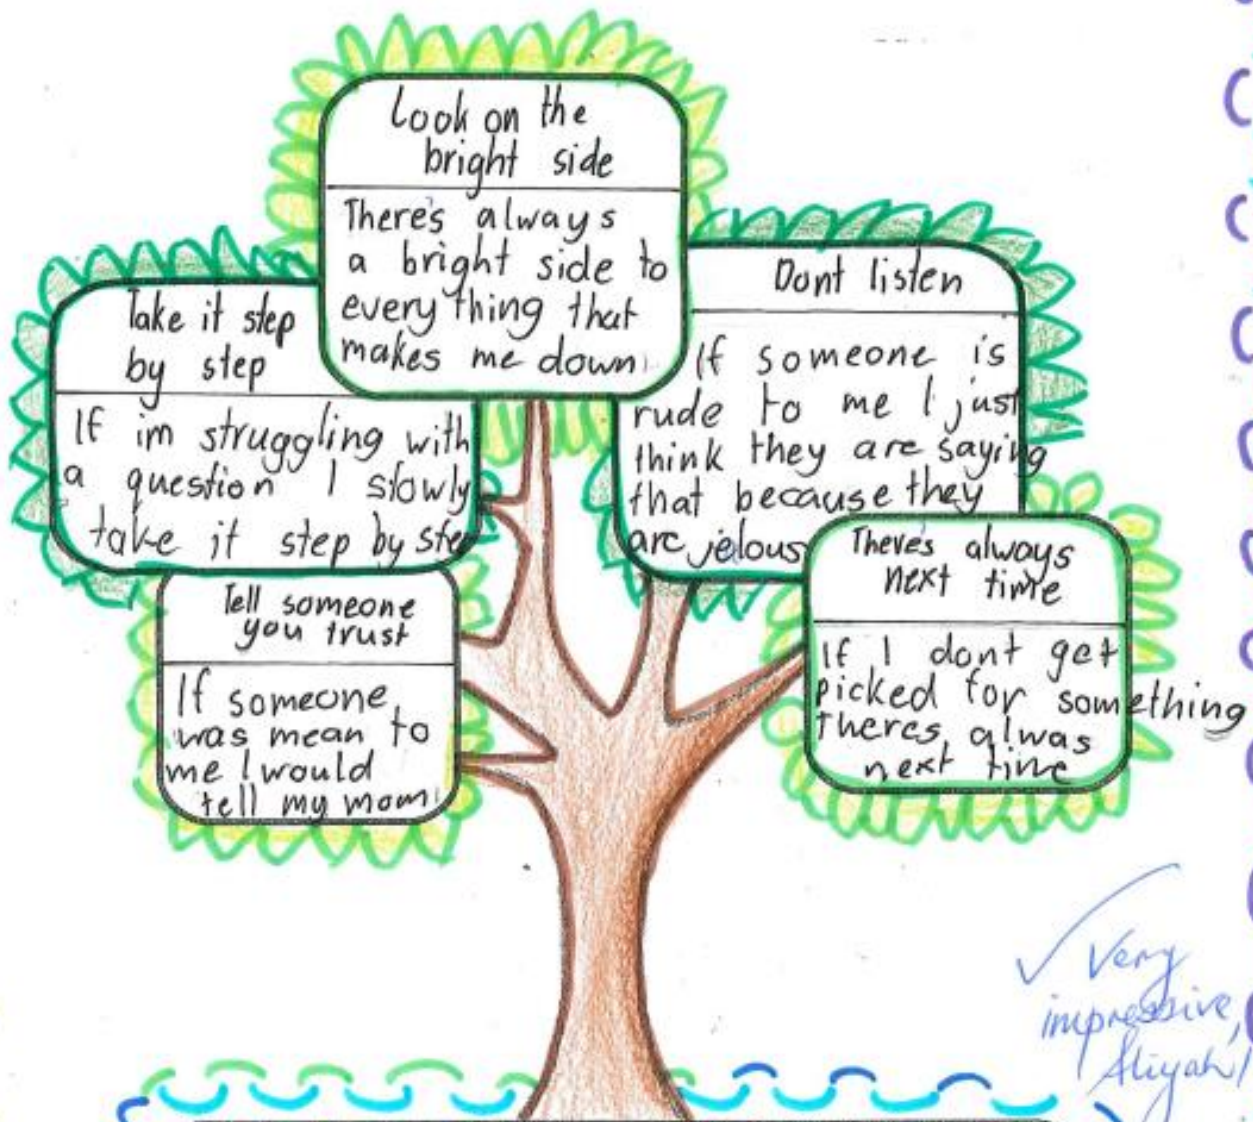 Look on the
bright side
There's always
a bright side to
everything that
makes me down.
Take it step
by step
If im struggling with
a question I slowly
take it step by step
Dont listen
If someone is
rude to me I just
think they are saying
that because they
are jelous
Tell someone
you trust
If someone
was mean to
me I would
tell my mom.
There's always
next time
If I dont get
picked for something
theres alwas
next time
✓ Very
impressive,
Aliyah!